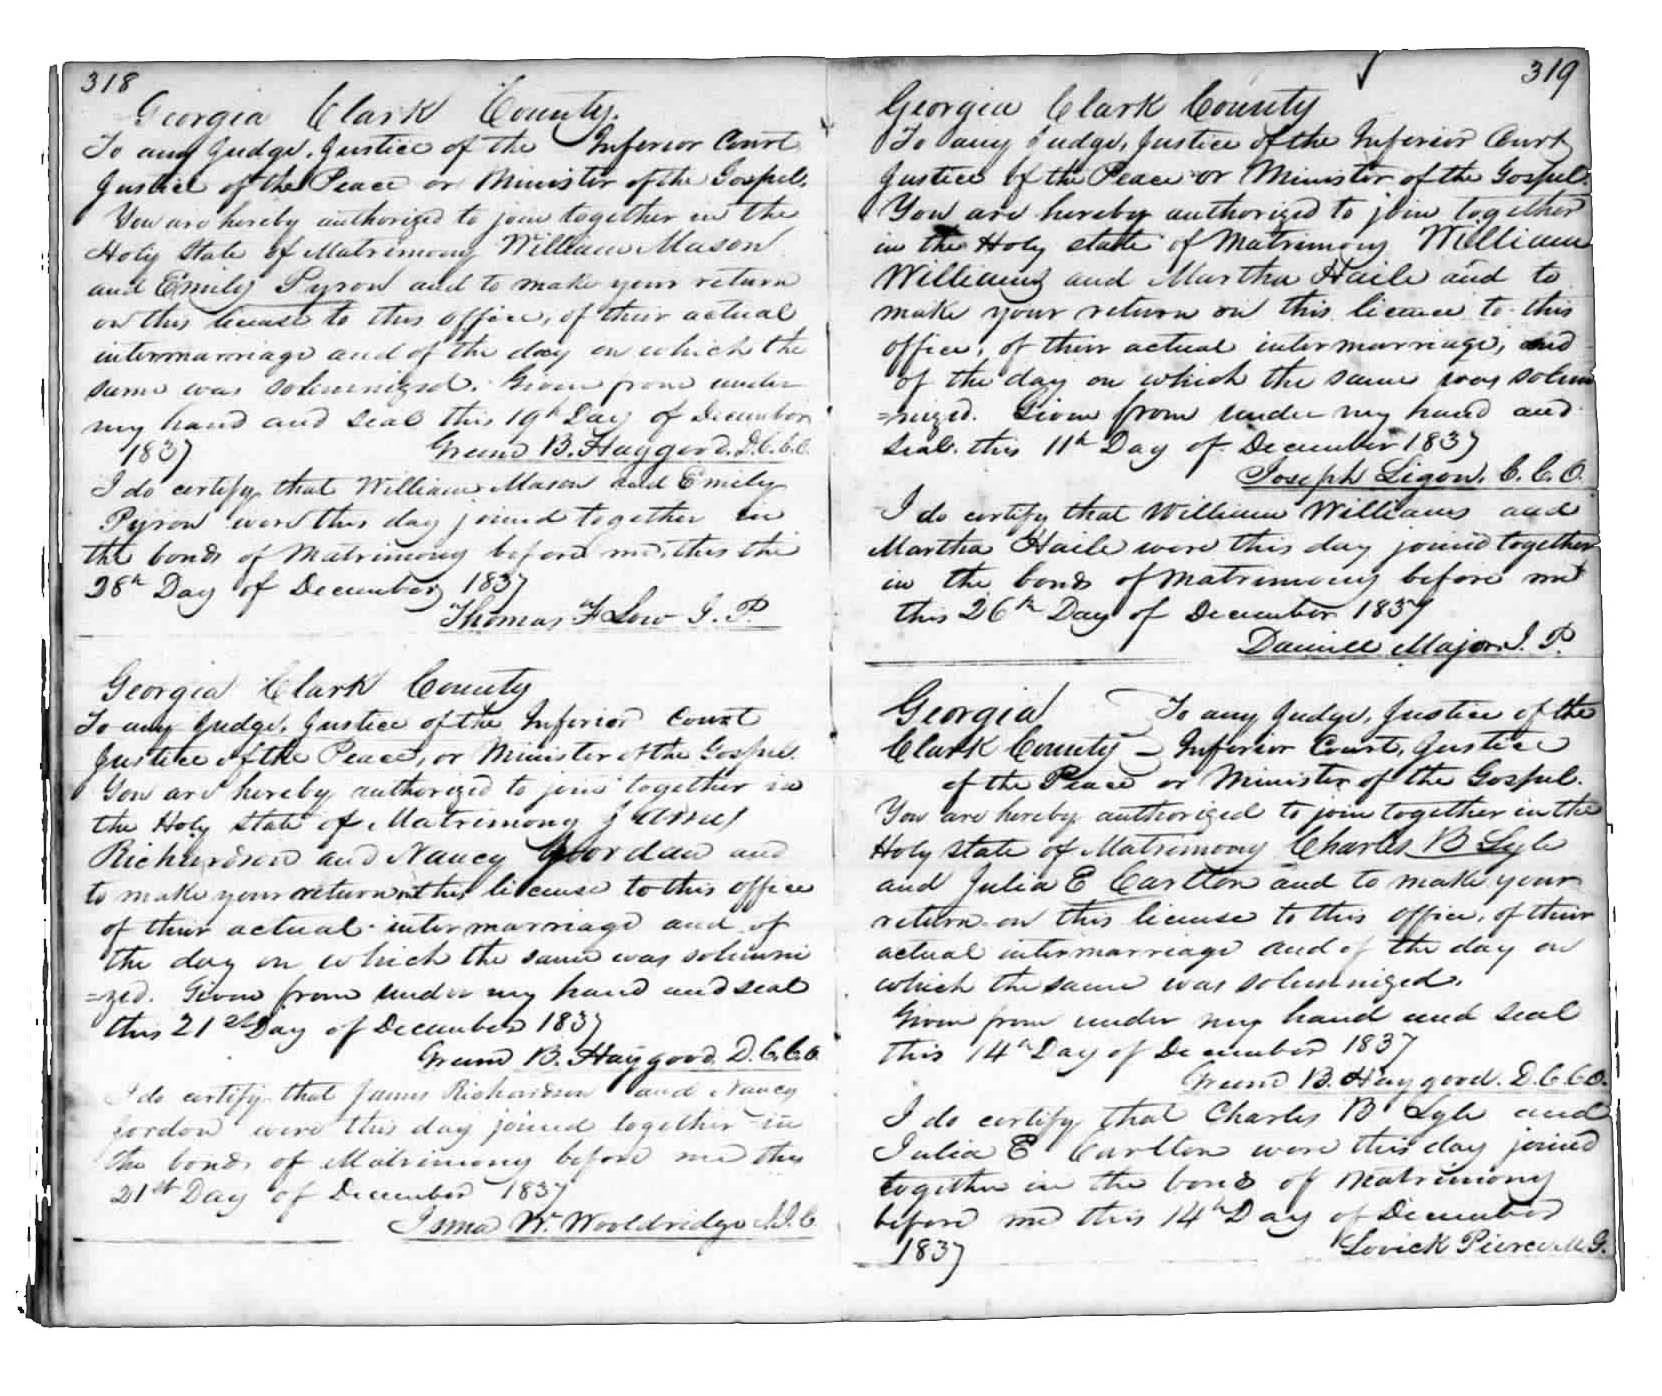 318
Georgia Clark County.
To any Judge, Justice of the Inferior Court
Justice of the Peace or Minister of the Gospel.
You are hereby authorized to join together in the
Holy State of Matrimony William Mason
and Emily Pyron and to make your return
on this license to this office, of their actual
intermarriage and of the day on which the
same was solemnized. Given from under
my hand and seal this 19th Day of December
1837
Green B. Haygood. D.C.C.O.
I do certify that William Mason and Emily
Pyron were this day joined together in
the bonds of Matrimony before me, this the
28th Day of December 1837
Thomas F Low J. P.
Georgia Clark County
To any Judge, Justice of the Inferior Court
Justice of the Peace, or Minister of the Gospel.
You are hereby authorized to join together in
the Holy State of Matrimony James
Richardson and Nancy Jordan and
to make your return on this license to this office
of their actual intermarriage and of
the day on which the same was solemni
=zed. Given from under my hand and seal
this 21st Day of December 1837
Green B. Haygood. D.C.C.O.
I do certify that James Richardson and Nancy
Jordon were this day joined together in
the bonds of Matrimony before me this
21st Day of December 1837
Isma W. Wooldridge J.I.C.
319
Georgia Clark County
To any Judge, Justice of the Inferior Court
Justice of the Peace or Minister of the Gospel.
You are hereby authorized to join together
in the Holy state of Matrimony William
Williams and Martha Haile and to
make your return on this licence to this
office, of their actual intermarriage, and
of the day on which the same was solem
=nized. Given from under my hand and
seal. this 11th Day of December 1837
Joseph Ligon. C.C.O.
I do certify that William Williams and
Martha Haile were this day joined together
in the bonds of Matrimony before me
this 26th Day of December 1837
Daniell Major J. P.
Georgia } To any Judge, Justice of the
Clark County } Inferior Court, Justice
of the Peace or Minister of the Gospel.
You are hereby authorized to join together in the
Holy state of Matrimony Charles B Lyle
and Julia E Carlton and to make your
return on this license to this office, of their
actual intermarriage and of the day on
which the same was solemnized.
Given from under my hand and seal
this 14th Day of December 1837
Green B. Haygood. D.C.C.O.
I do certify that Charles B Lyle and
Julia E Carlton were this day joined
together in the bonds of Matrimony
before me this 14th Day of December
1837
Lovick Pierce M. G.